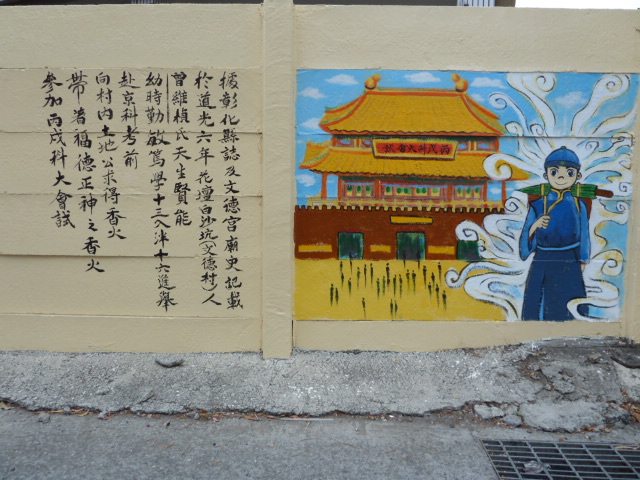 據彰化縣誌及文德宮廟史記載
於道光六年花壇白沙坑(文德村)人
曾維楨氏天生賢能
幼時勤敏篤學十三入泮十六進舉
赴京科考前
向村內土地公求得香火
帶著福德正神之香火
參加丙戌科大會試
丙戌科大會試